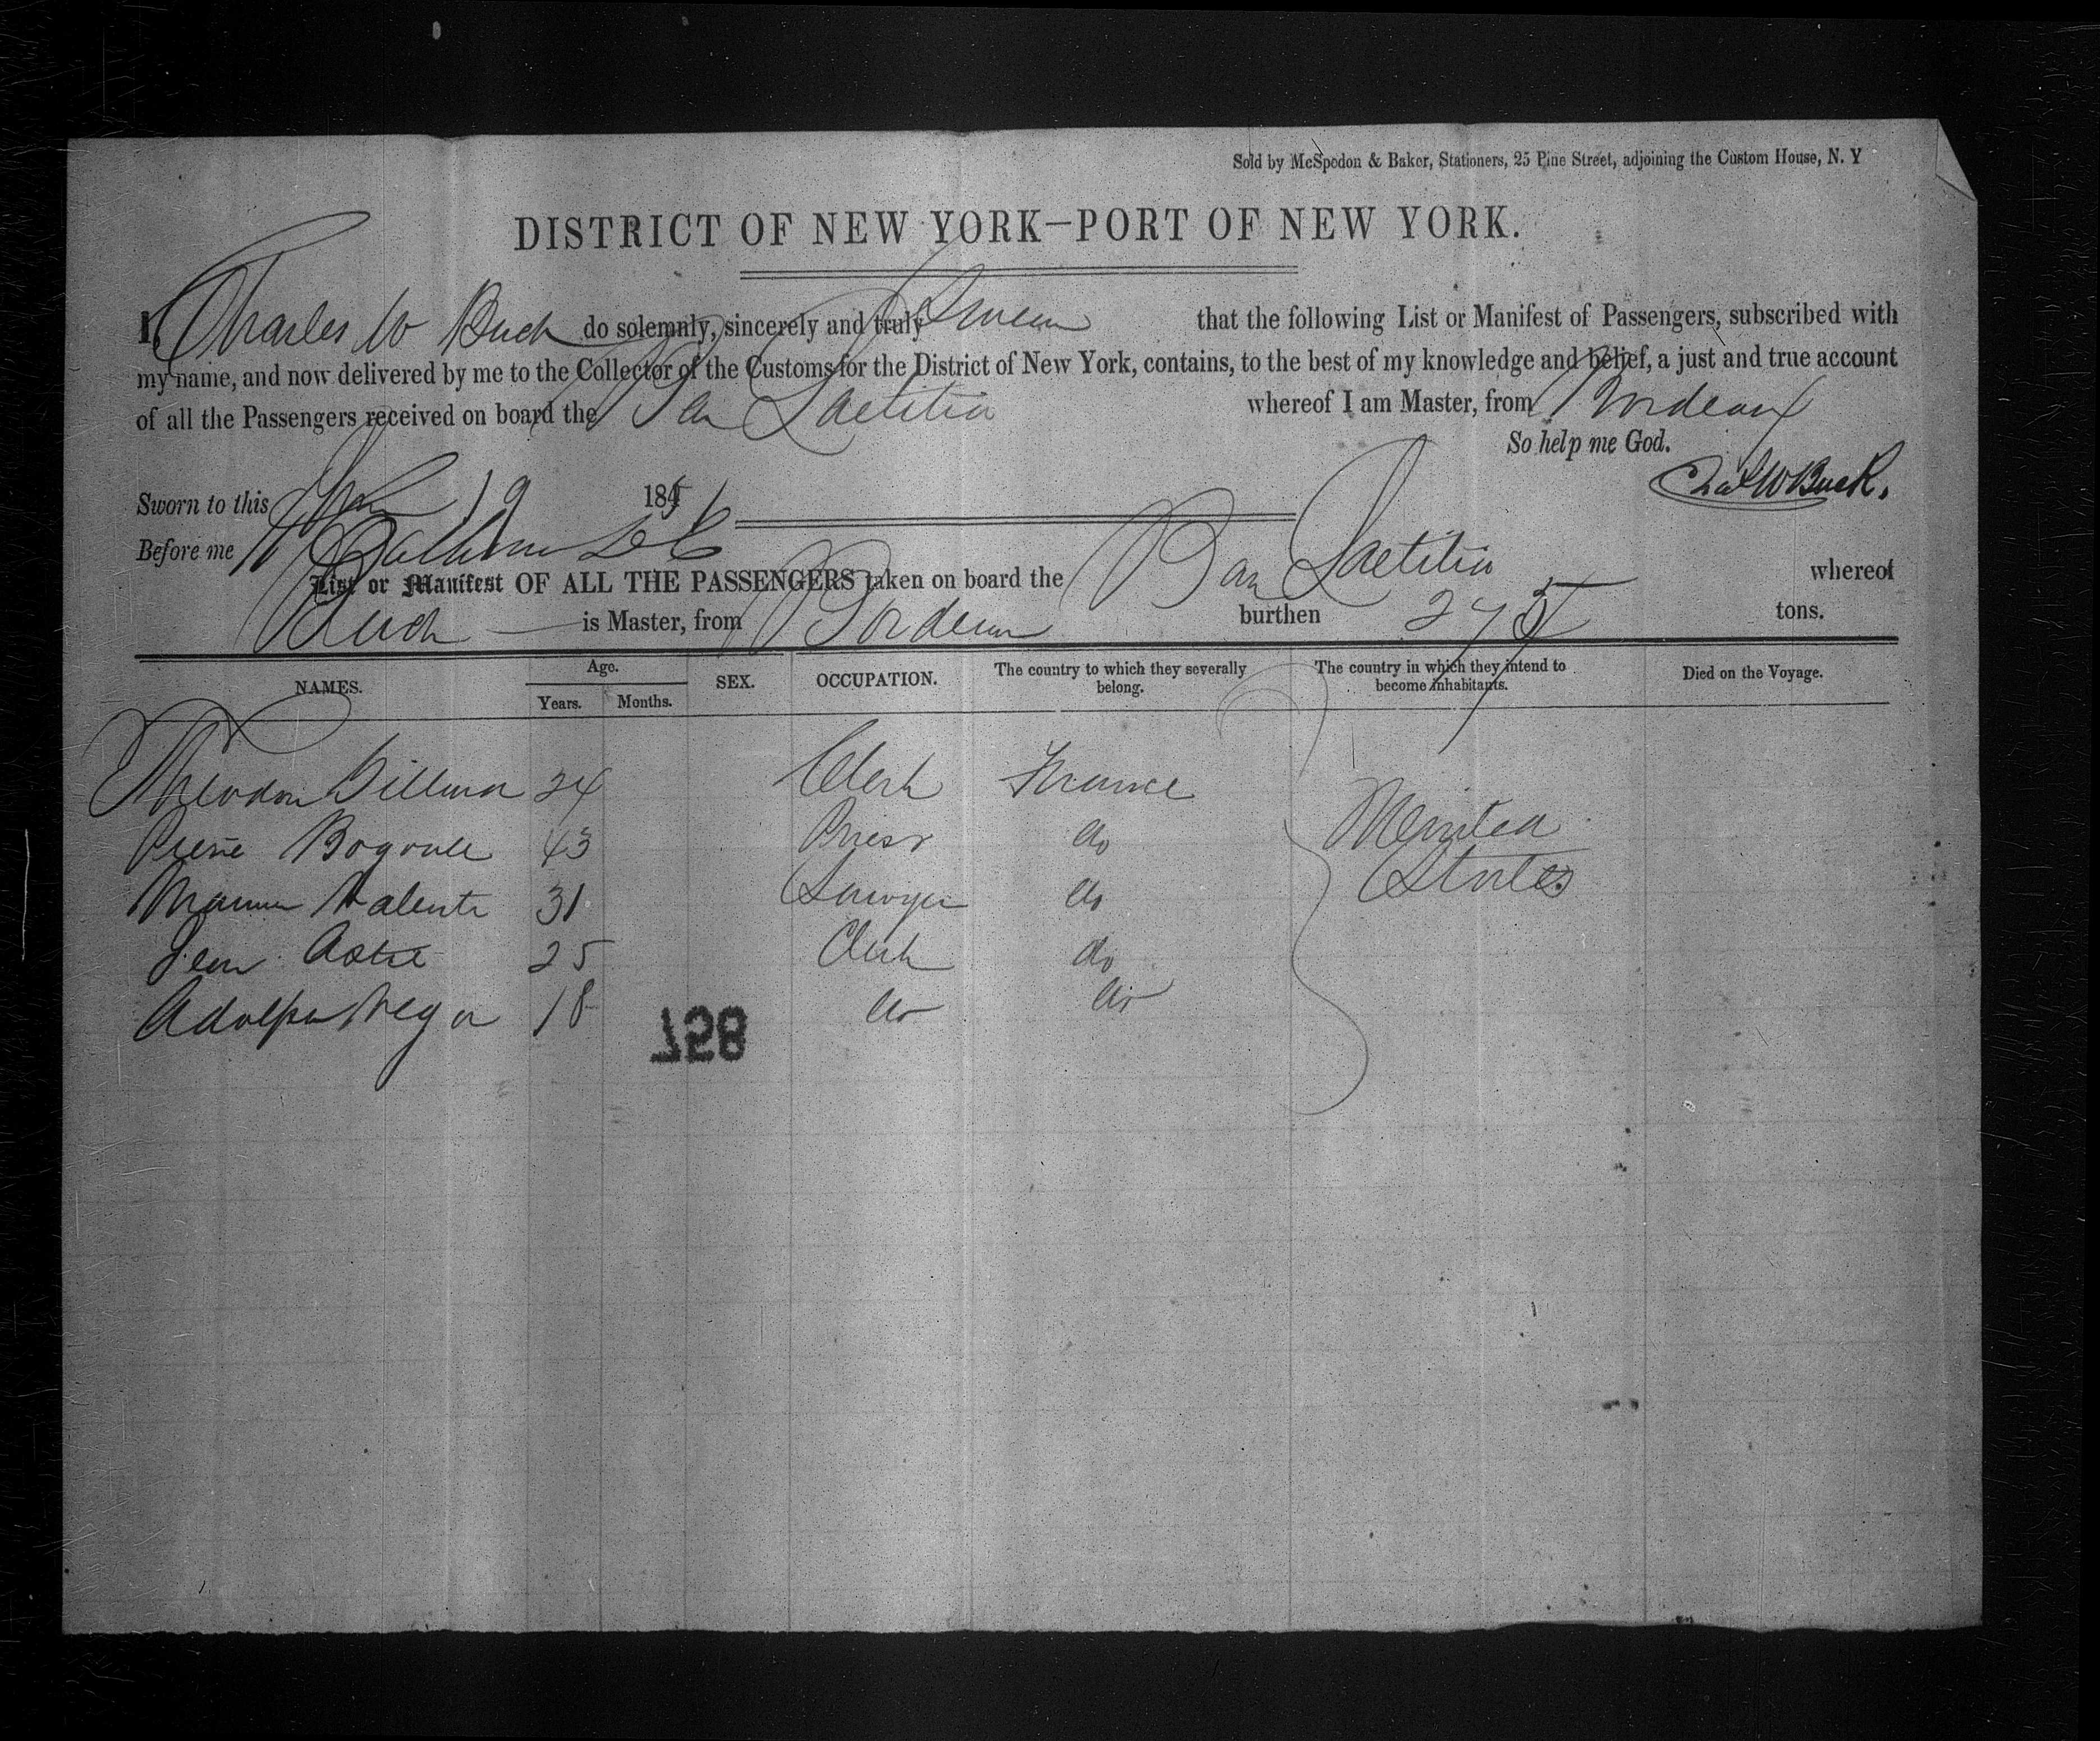 Sold by McSpedon & Baker, Stationers, 25 Pine Street, adjoining the Custom House, N. Y
DISTRICT OF NEW YORK—PORT OF NEW YORK.
I, Charles W Buck do solemnly, sincerely and truly Swear that the following List or Manifest of Passengers, subscribed with
my name, and now delivered by me to the Collector of the Customs for the District of New York, contains, to the best of my knowledge and belief, a just and true account
of all the Passengers received on board the Bar Laetitia whereof I am Master, from Bordeaux
So help me God.
Sworn to this 19 185 Chas W Buck.
Before me
List or Manifest OF ALL THE PASSENGERS taken on board the Bar Laetitia whereof
Buck is Master, from Bordeaux burthen 275 tons.
NAMES. Age. Years. Months. SEX. OCCUPATION. The country to which they severally belong. The country in which they intend to become inhabitants. Died on the Voyage.
Theodore 24 Clerk France
Pierre 43 Priest do United
31 Lawyer do States
Jean Astie 25 Clerk do
Adolphe 18 do do
857